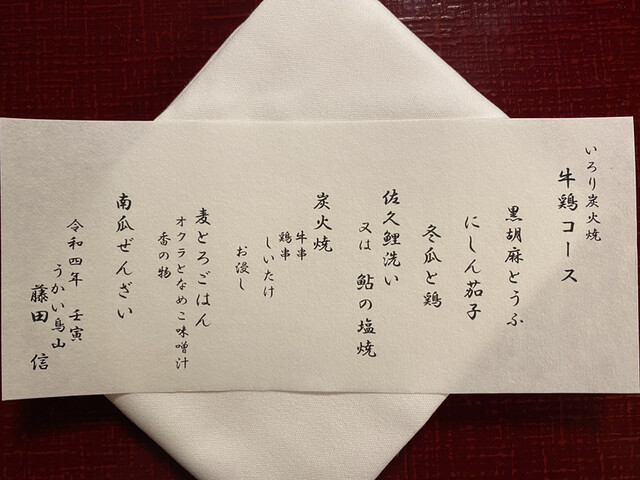 いろり炭火焼
牛鶏コース
黒胡麻とうふ
にしん茄子
冬瓜と鶏
佐久鯉洗い
又は 鮎の塩焼
炭火焼
牛串
鶏串
しいたけ
お浸し
麦とろごはん
オクラとなめこ味噌汁
香の物
南瓜ぜんざい
令和四年 壬寅
うかい鳥山
藤田 信